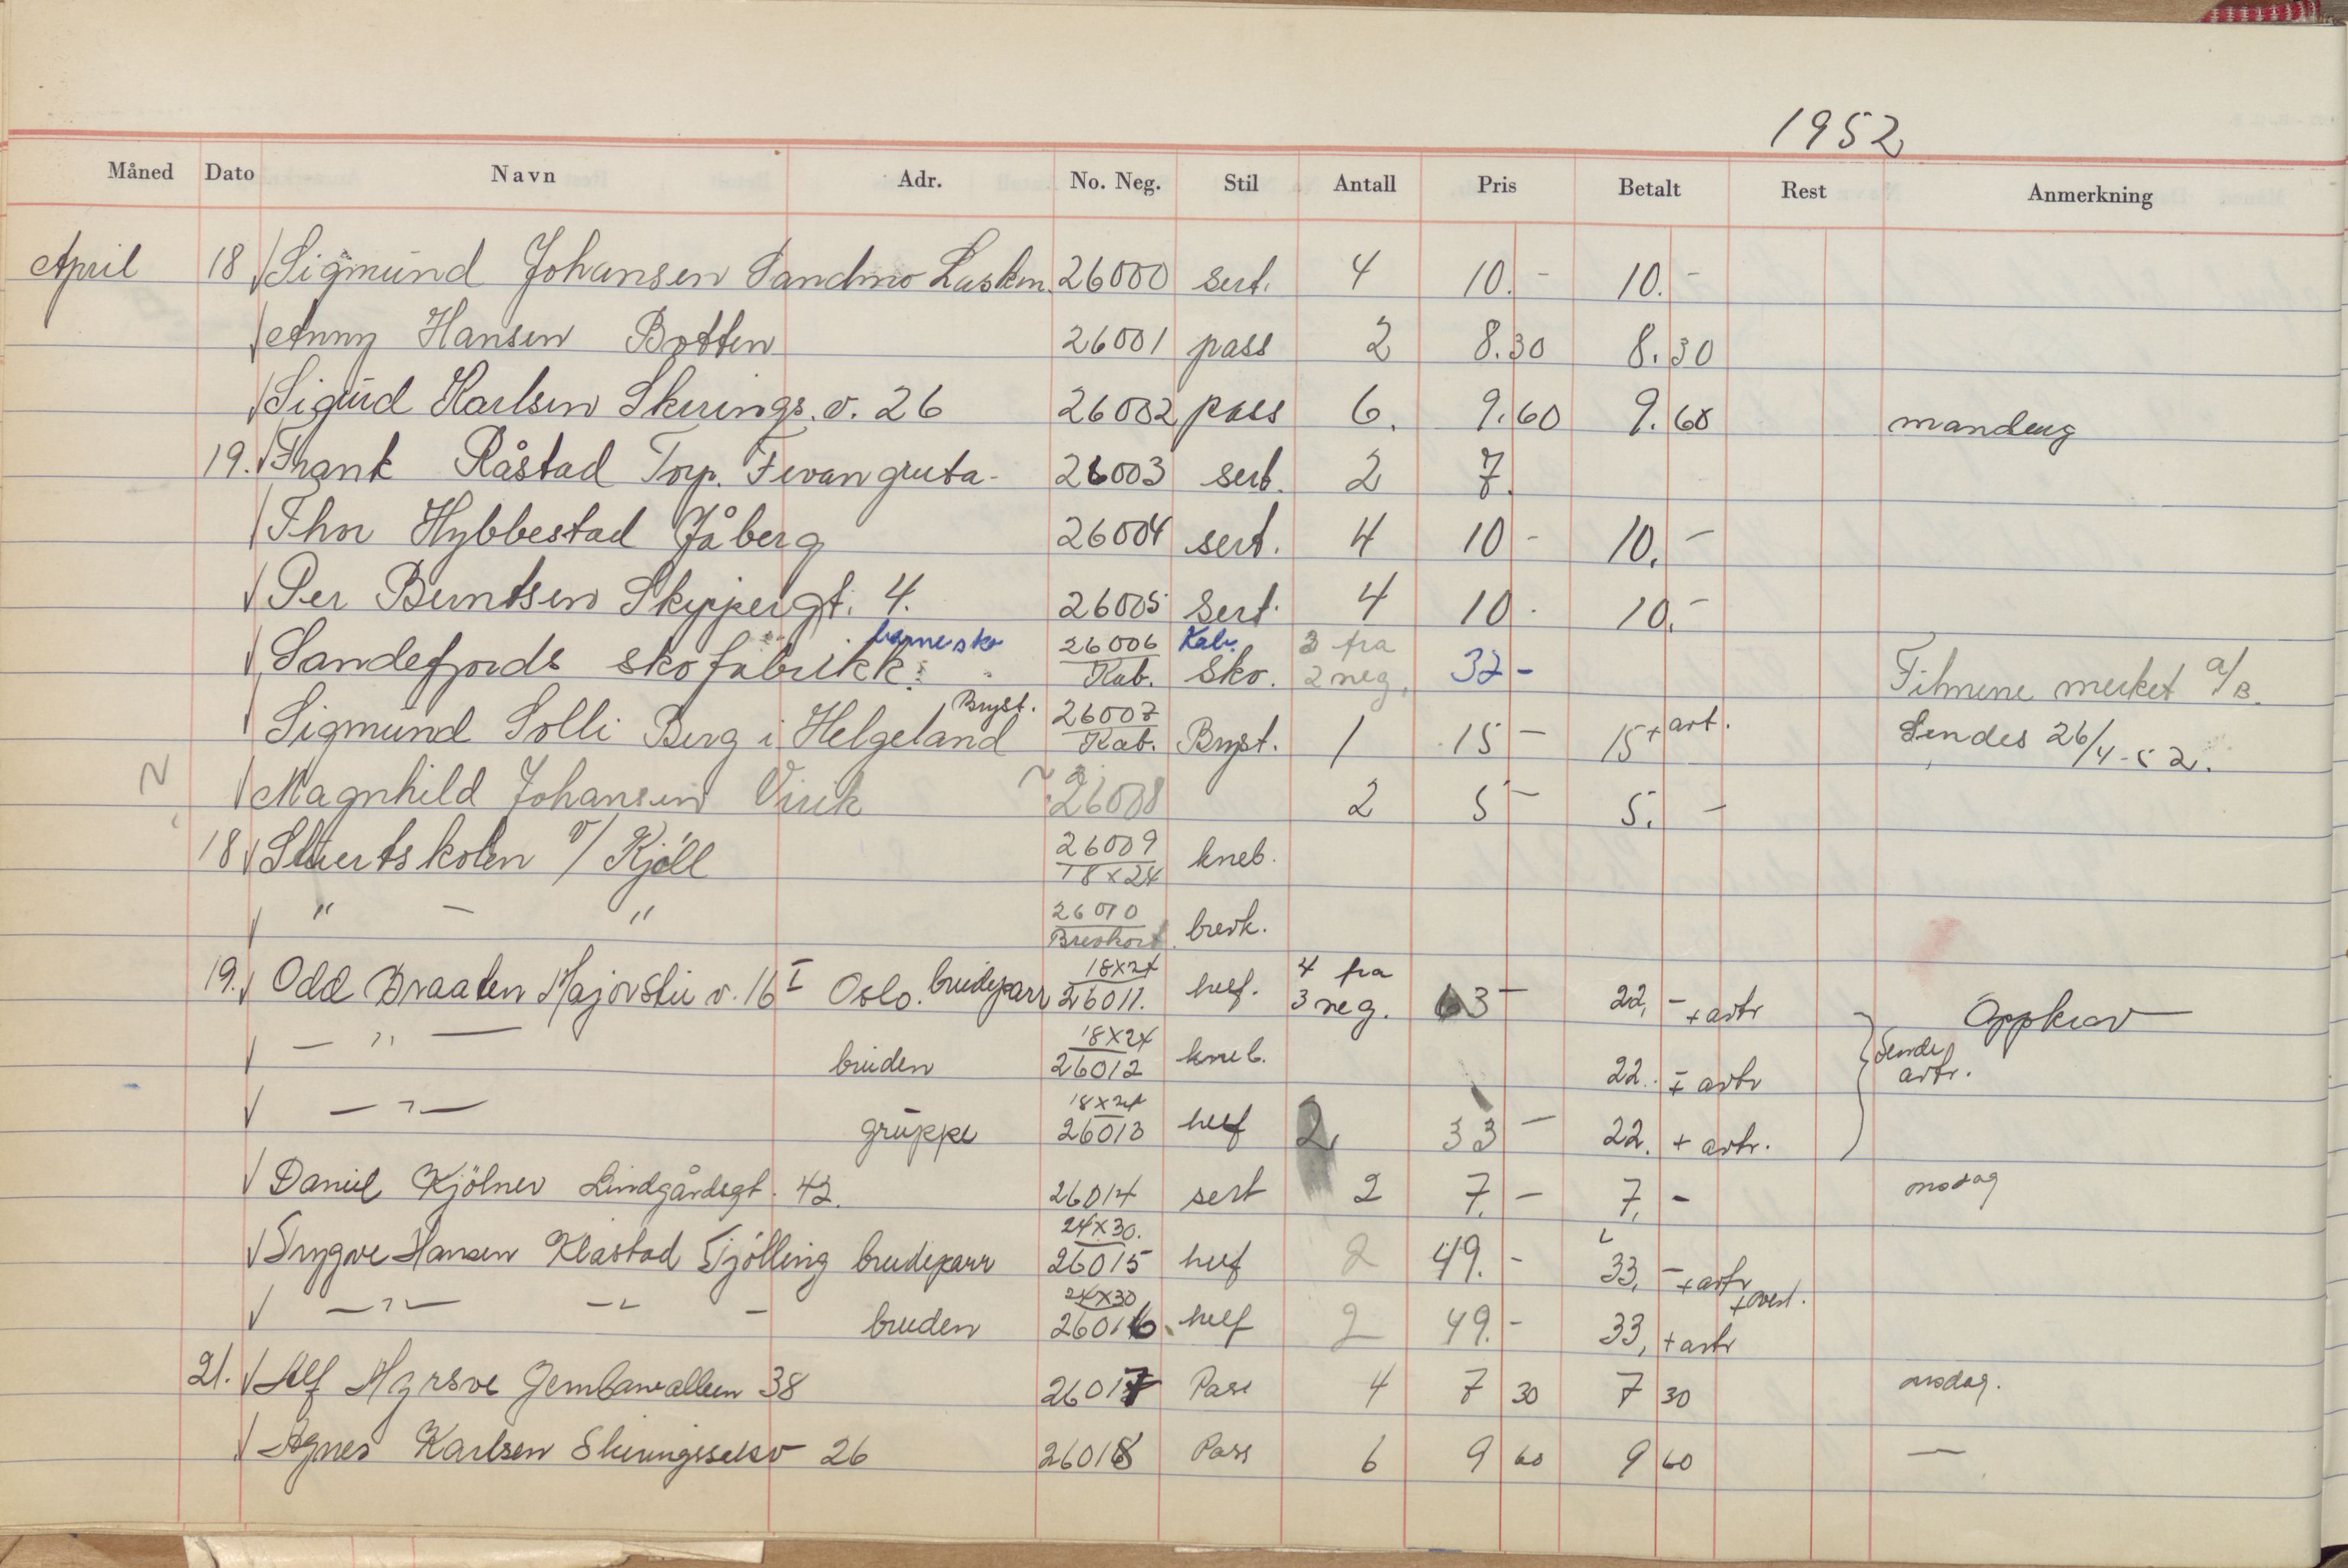 1952
Måned Dato Navn Adr. No. Neg. Stil Antall Pris Betalt Rest Anmerkning
April 18 √ Sigmund Johansen Sandmo Laskn. 26000 sert. 4 10.- 10.-
√ Anny Hansen Botten 26001 pass 2 8.30 8.30
√ Sigurd Karlsen Skirings.v. 26 26002 pass 6. 9.60 9.60 mandag
19. √ Frank Råstad Torp. Fevang ruta - 26003 sert. 2 7.
√ Thor Hybbestad Jåberg 26004 sert. 4 10 - 10.-
√ Per Berntsen Skippergt. 4. 26005 sert. 4 10 - 10.-
√ Sandefjords skofabrikk: barnesko 26006 Kab. Kab. Sko. 3 fra 2 neg. 32 - Filmene merket a/B.
√ Sigmund Solli Berg i Helgeland Bryst. 26007 Kab. Bryst. 1 15 - 15 + art. Sendes 26/4-52.
√ Magnhild Johansen Virik 26008 2 5 - 5. -
18 √ v/ Kjöll 26009 18x24 kneb.
√ " - " 26010 Brevkort brevk.
19. √ Odd Braaten Majorstu v. 16 I Oslo. brudeparr 18x24 26011. helf. 4 fra 3 neg. 63 - 22, - + astr Oppkrav
√ - " - bruden 18x24 26012 kneb. 22. + astr Sende astr.
√ - " - gruppe 18x24 26013 helf 2 33 - 22. + astr.
√ Daniel Kjölner Lindgårdsgt. 42. 26014 sert 2 7. - 7. - onsdag
√ Trygve Hansen Klåstad Tjölling brudeparr 24x30. 26015 helf 2 49. - 33, - + astr
√ - " - - " - bruden 24x30 26016 helf 2 49. - 33, + astr
21. √ Alf Myrsve Jernbanealleen 38 26017 Pass 4 7 30 7 30 onsdag.
√ Agnes Karlsen 26 26018 Pass 6 9 60 9 60 —